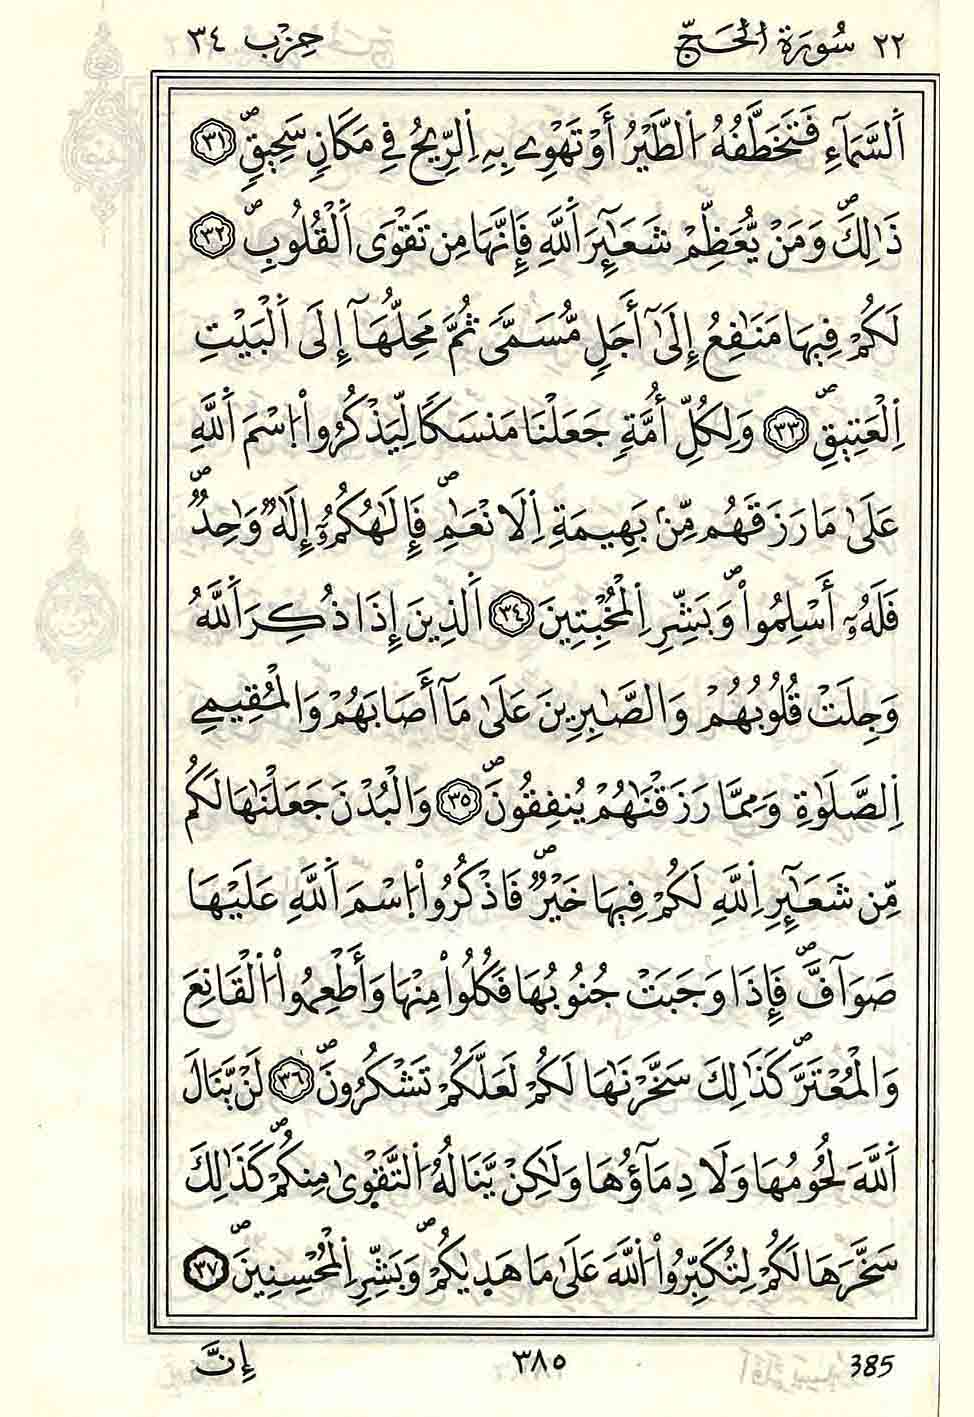 ٢٢ سُورَةُ الْحَجِّ حِزْب ٣٤
اَ۬لسَّمَآءِ فَتَخَطَّفُهُ اُ۬لطَّيْرُ أَوْ تَهْوِے بِهِ اِ۬لرِّيحُ فِے مَكَانٖ سَحِيقٖۖ ٣١
ذَٰلِكَۖ وَمَنْ يُّعَظِّمْ شَعَٰٓئِرَ اَ۬للَّهِ فَإِنَّهَا مِن تَقْوَى اَ۬لْقُلُوبِۖ ٣٢
لَكُمْ فِيهَا مَنَٰفِعُ إِلَىٰٓ أَجَلٖ مُّسَمّٗى ثُمَّ مَحِلُّهَآ إِلَى اَ۬لْبَيْتِ
اِ۬لْعَتِيقِۖ ٣٣ وَلِكُلِّ أُمَّةٖ جَعَلْنَا مَنسَكاٗ لِّيَذْكُرُواْ اُ۪سْمَ اَ۬للَّهِ
عَلَىٰ مَا رَزَقَهُم مِّنۢ بَهِيمَةِ اِ۬لَانْعَٰمِۖ فَإِلَٰهُكُمُۥٓ إِلَٰهٞ وَٰحِدٞۖ
فَلَهُۥٓ أَسْلِمُواْۖ وَبَشِّرِ اِ۬لْمُخْبِتِينَ ٣٤ اَ۬لذِينَ إِذَا ذُكِرَ اَ۬للَّهُ
وَجِلَتْ قُلُوبُهُمْ وَالصَّٰبِرِينَ عَلَىٰ مَآ أَصَابَهُمْ وَالْمُقِيمِے
اِ۬لصَّلَوٰةِ وَمِمَّا رَزَقْنَٰهُمْ يُنفِقُونَۖ ٣٥ وَالْبُدْنَ جَعَلْنَٰهَا لَكُم
مِّن شَعَٰٓئِرِ اِ۬للَّهِ لَكُمْ فِيهَا خَيْرٞۖ فَاذْكُرُواْ اُ۪سْمَ اَ۬للَّهِ عَلَيْهَا
صَوَآفَّۖ فَإِذَا وَجَبَتْ جُنُوبُهَا فَكُلُواْ مِنْهَا وَأَطْعِمُواْ اُ۬لْقَانِعَ
وَالْمُعْتَرَّۖ كَذَٰلِكَ سَخَّرْنَٰهَا لَكُمْ لَعَلَّكُمْ تَشْكُرُونَۖ ٣٦ لَنْ يَّنَالَ
اَ۬للَّهَ لُحُومُهَا وَلَا دِمَآؤُهَا وَلَٰكِنْ يَّنَالُهُ اُ۬لتَّقْوٜىٰ مِنكُمْۖ كَذَٰلِكَ
سَخَّرَهَا لَكُمْ لِتُكَبِّرُواْ اُ۬للَّهَ عَلَىٰ مَا هَدٜىٰكُمْۖ وَبَشِّرِ اِ۬لْمُحْسِنِينَۖ ٣٧
إِنَّ ٣٨٥ 385